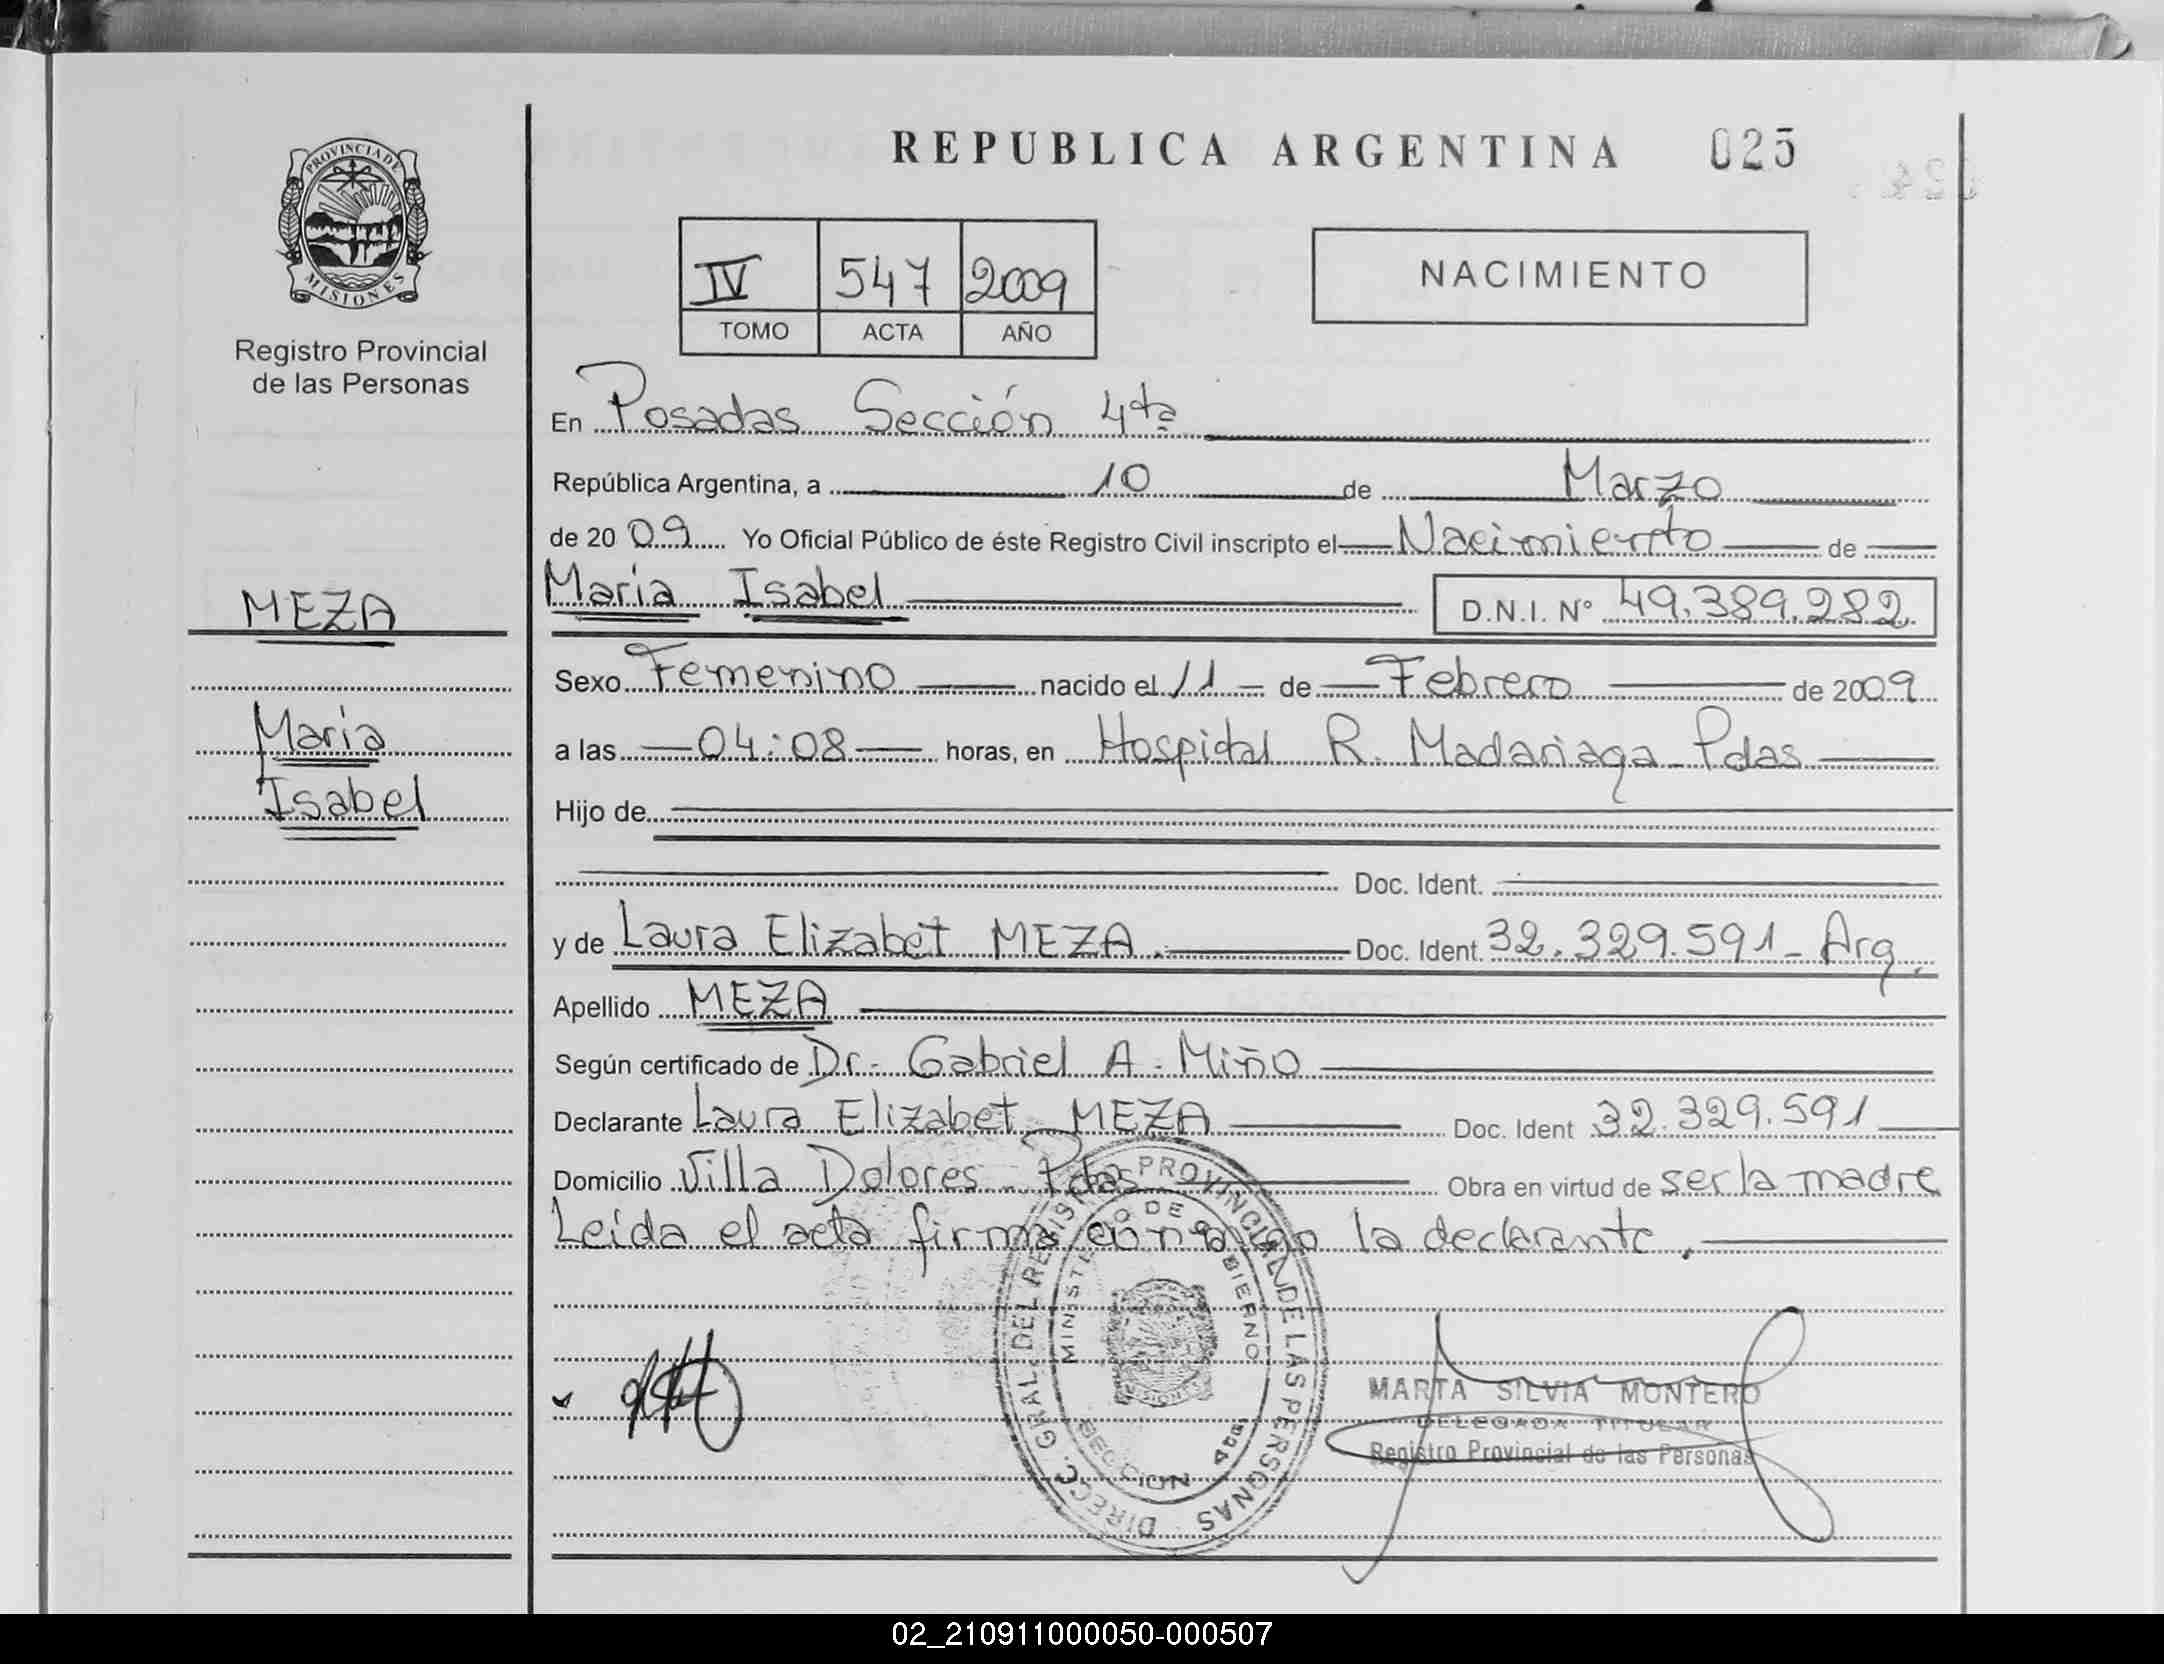 PROVINCIA DE
MISIONES
Registro Provincial
de las Personas
MEZA
Maria
Isabel
REPUBLICA ARGENTINA 025
IV 547 2009
TOMO ACTA AÑO
NACIMIENTO
En Posadas Sección 4ta
República Argentina, a 10 de Marzo
de 20 09 Yo Oficial Público de éste Registro Civil inscripto el Nacimiento de
Maria Isabel D.N.I. N° 49.389.282
Sexo Femenino nacido el 11 de Febrero de 2009
a las 04:08 horas, en Hospital R. Madariaga - Pdas
Hijo de
Doc. Ident.
y de Laura Elizabet MEZA. Doc. Ident. 32.329.591 - Arg.
Apellido MEZA
Según certificado de Dr. Gabriel A. Miño
Declarante Laura Elizabet MEZA Doc. Ident 32.329.591
Domicilio Villa Dolores - Pdas Obra en virtud de ser la madre
Leida el acta firma conmigo la declarante.
DIRECC. GRAL. DEL REGISTRO PROVINCIAL DE LAS PERSONAS
MINISTERIO DE GOBIERNO
SECCION
MARTA SILVIA MONTERO
DELEGADA TITULAR
Registro Provincial de las Personas
02_210911000050-000507